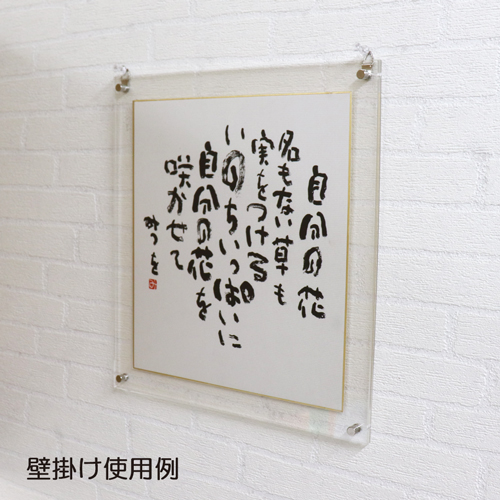 自分の花
名もない草も
実をつける
いのちいっぱいに
自分の花を
咲かせて
みつを
壁掛け使用例